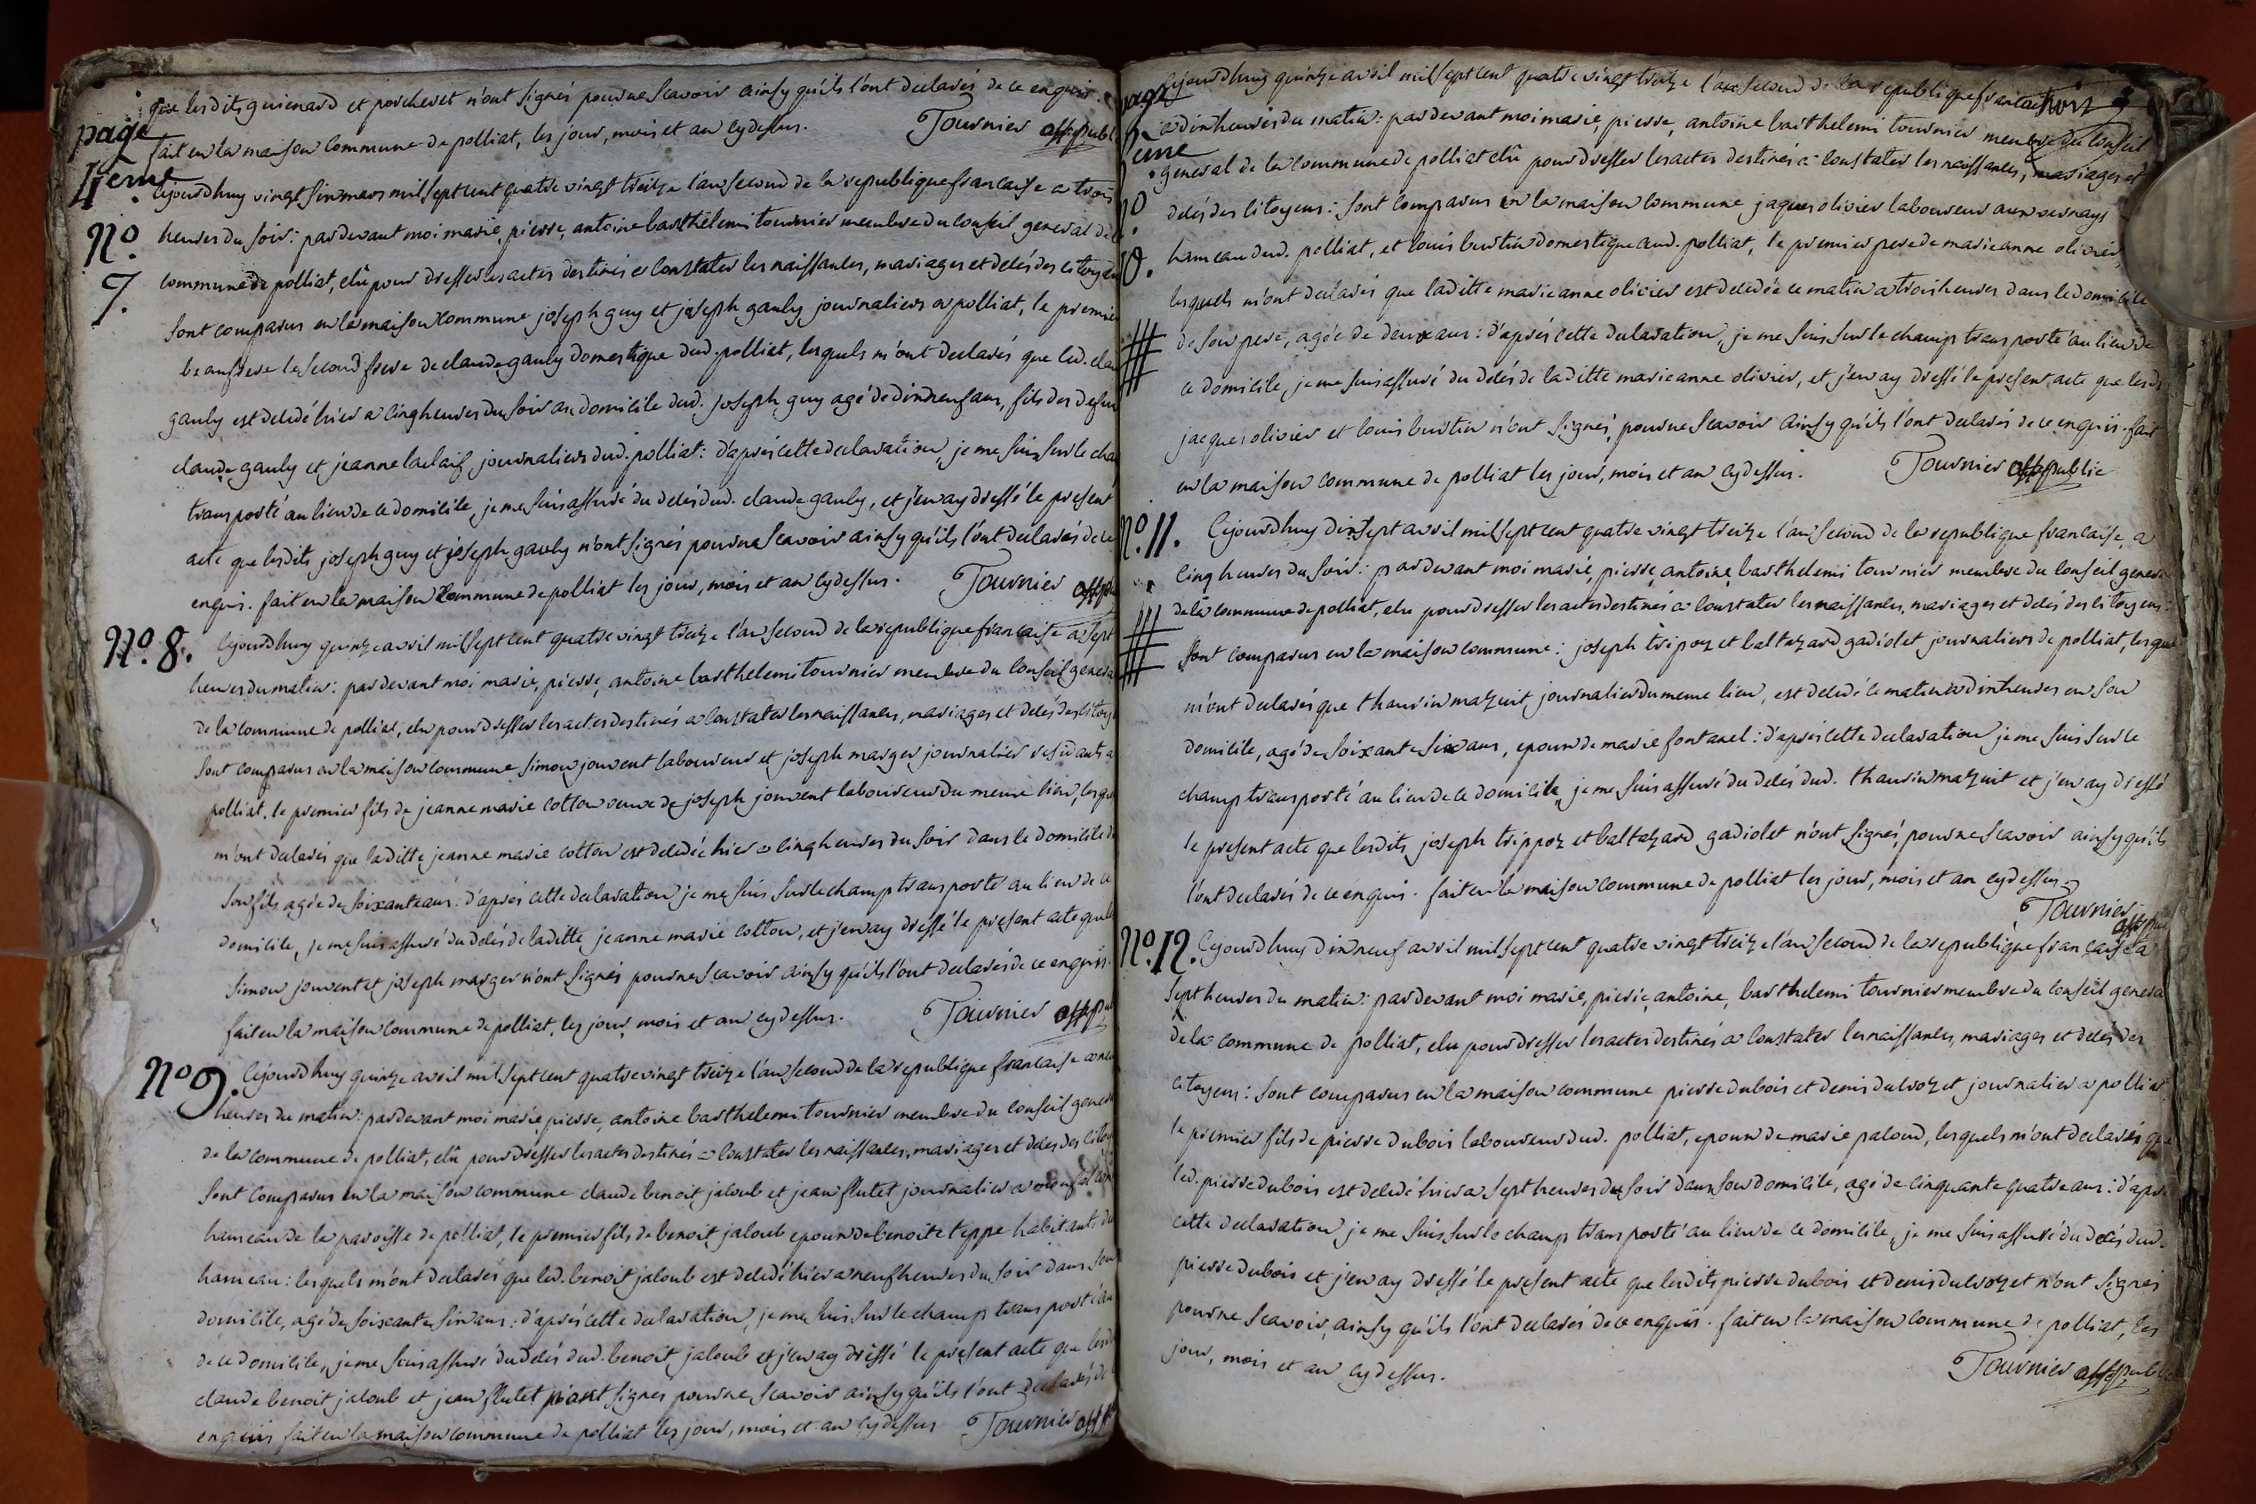 que lesdits guienard et porcheret n'ont signés pour ne scavoir ainsy qu'ils l'ont declarés de ce enquis.
page
fait en la maison commune de polliat, les jour, mois et an cydessus. Tournier off. publ
4eme
Cejourdhuy vingt six mars mil sept cent quatre vingt treize l'an second de la republique francaise a trois
No. 7.
heures du soir: pardevant moi marie, pierre, antoine barthelemi tournier membre du conseil general de
commune de polliat, elû pour dresser les actes destinés a constater les naissances, mariages et decés des citoyens
sont comparus en la maison commune joseph guy et joseph gauly journaliers a polliat, le premier
beaufrere le second frere de claude gauly domestique dud. polliat, lesquels m'ont declarés que led. clau
gauly est decedé hier a cinq heures du soir au domicile dud. joseph guy agé de dixneuf ans, fils des defun
claude gauly et jeanne journaliers dud. polliat: d'aprés cette declaration, je me suis sur le cha
transporté au lieu de ce domicile, je me suis assuré du decés dud. claude gauly, et j'en ay dressé le present
acte que lesdits joseph guy et joseph gauly n'ont signés pour ne scavoir ainsy qu'ils l'ont declarés de ce
enquis. fait en la maison commune de polliat les jour, mois et an cydessus. Tournier off. pu
No. 8. Cejourdhuy quinze avril mil sept cent quatre vingt treize l'an second de la republique francaise a sept
heures du matin: pardevant moi marie, pierre, antoine barthelemi tournier membre du conseil genera
de la commune de polliat, elu pour dresser les actes destinés a constater les naissances, mariages et decés des citoy
sont comparus en la maison commune simon jouvent laboureur et joseph marger journalier residants a
polliat. le premier fils de jeanne marie cotton veuve de joseph jouvent laboureur du meme lieu, lesque
m'ont declarés que laditte jeanne marie cotton est decedée hier a cinq heures du soir dans le domicile de
son fils agée de soixante ans: d'aprés cette declaration je me suis sur le champ transporté au lieu de ce
domicile, je me suis assuré du decés de laditte jeanne marie cotton, et j'en ay dressé le present acte que les
simon jouvent et joseph marger n'ont signés pour ne scavoir ainsy qu'ils l'ont declarés de ce enquis.
fait en la maison commune de polliat, les jour, mois et an cydessus. Tournier off. pu
No 9. Cejourdhuy quinze avril mil sept cent quatre vingt treize l'an second de la republique francaise a neu
heures du matin: pardevant moi marie pierre, antoine barthelemi tournier membre du conseil genera
de la commune de polliat, elû pour dresser les actes destinés a constater les naissances, mariages et decés des citoy
sont comparus en la maison commune claude benoit jaloub et jean flutet journalier a
hameau de la paroisse de polliat, le premier fils de benoit jaloub epoux de benoite teppe habitants du
hameau: lesquels m'ont declarés que led. benoit jaloub est decedé hier a neuf heures du soir dans son
domicile, agé de soixante six ans: d'aprés cette declaration, je me suis sur le champ transporté au
de ce domicile, je me suis assuré du decés dud. benoit jaloub et j'en ay dressé le present acte que lesd
claude benoit jaloub et jean flutet n'ont signés pour ne scavoir ainsy qu'ils l'ont declarés de
enquis fait en la maison commune de polliat les jour, mois et an cydessus Tournier off
Cejourdhuy quinze avril mil sept cent quatre vingt treize l'an second de la republique francaise
page
5eme
a dix heures du matin: pardevant moi marie, pierre, antoine barthelemi tournier membre du conseil
general de la commune de polliat elû pour dresser les actes destinés a constater les naissances, mariages et
no 10.
decés des citoyens: sont comparus en la maison commune jaques olivier laboureur aux vernays
hameau dud. polliat, et louis burtin domestique aud. polliat, le premier pere de marieanne olivier,
lesquels m'ont declarés que laditte marieanne olivier est decedée ce matin a trois heures dans le domicile
de son pere, agée de deux ans: d'aprés cette declaration, je me suis sur le champ transporté au lieu de
ce domicile, je me suis assuré du decés de laditte marieanne olivier, et j'en ay dressé le present acte que lesd
jacques olivier et louis burtin n'ont signés, pour ne scavoir ainsy qu'ils l'ont declarés de ce enquis. fait
en la maison commune de polliat les jour, mois et an cydessus. Tournier off. public
No. 11. Cejourdhuy dixsept avril mil sept cent quatre vingt treize l'an second de la republique francaise, a
cinq heures du soir: pardevant moi marie, pierre, antoine, barthelemi tournier membre du conseil genera
de la commune de polliat, elu pour dresser les actes destinés a constater les naissances, mariages et decés des citoyens:
sont comparus en la maison commune: joseph tripoz et baltazard gadiolet journaliers de polliat, lesquels
m'ont declarés que thaurin mazuit, journalier du meme lieu, est decedé ce matin a dix heures en son
domicile, agé de soixante six ans, epoux de marie fontanel: d'aprés cette declaration je me suis sur le
champ transporté au lieu de ce domicile, je me suis assuré du decés dud. thaurin mazuit et j'en ay dressé
le present acte que lesdits joseph trippoz et baltazard gadiolet n'ont signés, pour ne scavoir ainsy qu'ils
l'ont declarés de ce enquis. fait en la maison commune de polliat les jour, mois et an cydessus
Tournier off. pu
No. 12. Cejourdhuy dixneuf avril mil sept cent quatre vingt treize l'an second de la republique francaise a
sept heures du matin: pardevant moi marie, pierre, antoine, barthelemi tournier membre du conseil genera
de la commune de polliat, elu pour dresser les actes destinés a constater les naissances, mariages et decés des
citoyens: sont comparus en la maison commune pierre dubois et denis ducrozet journalier a polliat
le premier fils de pierre dubois laboureur dud. polliat, epoux de marie paloud, lesquels m'ont declarés que
led. pierre dubois est decedé hier a sept heures du soir dans son domicile, agé de cinquante quatre ans: d'aprés
cette declaration je me suis sur le champ transporté au lieu de ce domicile, je me suis assuré du decés dud.
pierre dubois et j'en ay dressé le present acte que lesdits pierre dubois et denis ducrozet n'ont signés
pour ne scavoir, ainsy qu'ils l'ont declarés de ce enquis. fait en la maison commune de polliat, les
jour, mois et an cydessus. Tournier off. public